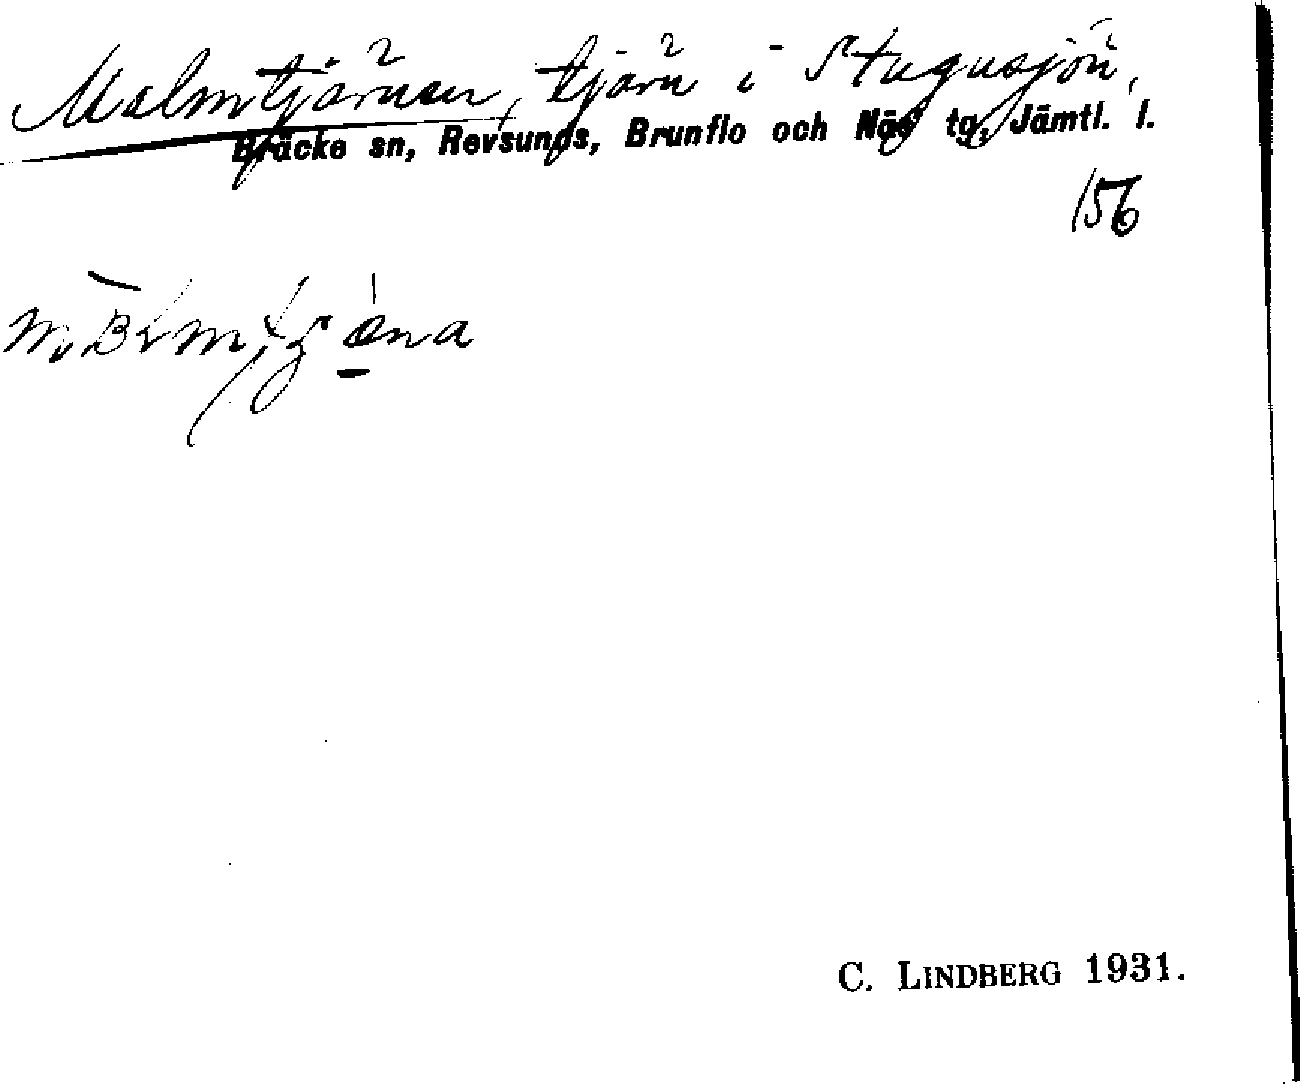 Malmtjärnen, tjärn i Stugusjön,
Bräcke sn, Revsunds, Brunflo och Näs tg, Jämtl. l.
156
C. LINDBERG 1931.